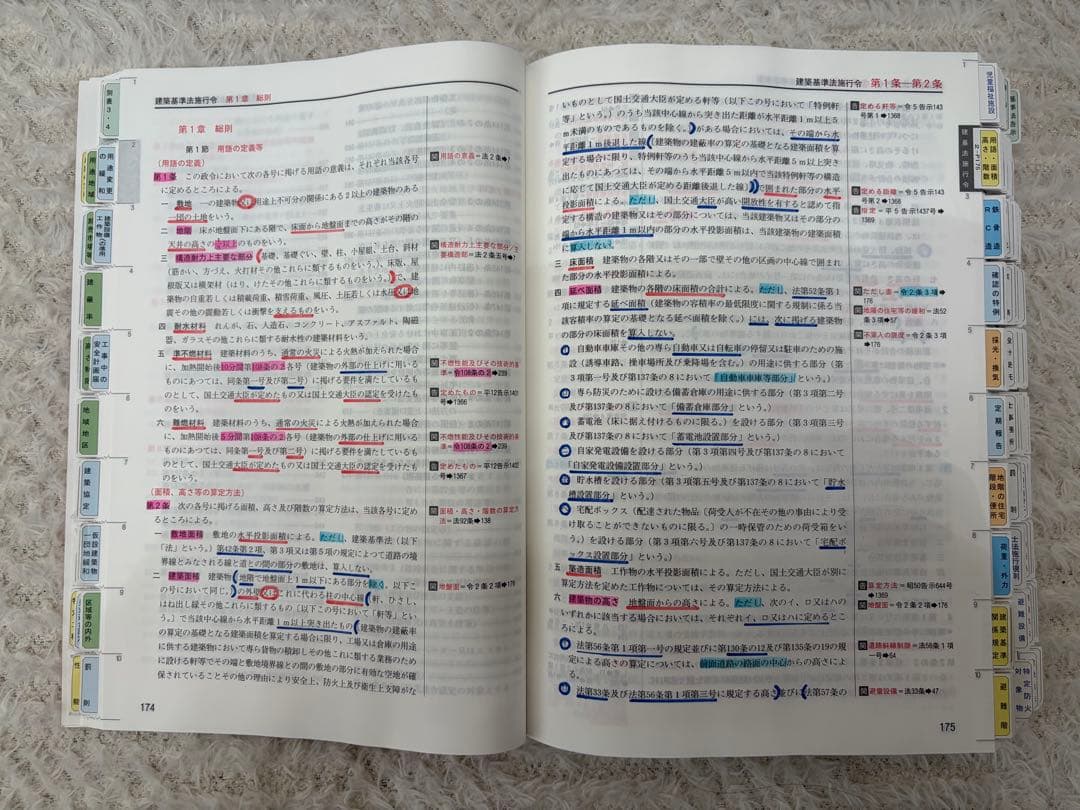 建築基準法施行令 第1章 総則
第1章 総則
第1節 用語の定義等
(用語の定義)
第1条 この政令において次の各号に掲げる用語の意義は、それぞれ当該各号
に定めるところによる。
一 敷地 一の建築物又は用途上不可分の関係にある2以上の建築物のある
一団の土地をいう。
二 地階 床が地盤面下にある階で、床面から地盤面までの高さがその階の
天井の高さの1/3以上のものをいう。
三 構造耐力上主要な部分 (基礎、基礎ぐい、壁、柱、小屋組、土台、斜材
(筋かい、方づえ、火打材その他これらに類するものをいう。)、床版、屋
根版又は横架材(はり、けたその他これらに類するものをいう。))で、建
築物の自重若しくは積載荷重、積雪荷重、風圧、土圧若しくは水圧又は地
震その他の震動若しくは衝撃を支えるものをいう。
四 耐水材料 れんが、石、人造石、コンクリート、アスファルト、陶磁
器、ガラスその他これらに類する耐水性の建築材料をいう。
五 準不燃材料 建築材料のうち、通常の火災による火熱が加えられた場合
に、加熱開始後10分間第108条の2各号(建築物の外部の仕上げに用いる
ものにあつては、同条第一号及び第二号)に掲げる要件を満たしているも
のとして、国土交通大臣が定めたもの又は国土交通大臣の認定を受けたも
のをいう。
六 難燃材料 建築材料のうち、通常の火災による火熱が加えられた場合
に、加熱開始後5分間第108条の2各号(建築物の外部の仕上げに用いる
ものにあつては、同条第一号及び第二号)に掲げる要件を満たしているも
のとして、国土交通大臣が定めたもの又は国土交通大臣の認定を受けたも
のをいう。
(面積、高さ等の算定方法)
第2条 次の各号に掲げる面積、高さ及び階数の算定方法は、当該各号に定
めるところによる。
一 敷地面積 敷地の水平投影面積による。ただし、建築基準法(以下
「法」という。)第42条第2項、第3項又は第5項の規定によつて道路の境
界線とみなされる線と道との間の部分の敷地は、算入しない。
二 建築面積 建築物(地階で地盤面上1m以下にある部分を除く。以下こ
の号において同じ。)の外壁又はこれに代わる柱の中心線(軒、ひさし、
はね出し縁その他これらに類するもの(以下この号において「軒等」とい
う。)で当該中心線から水平距離1m以上突き出たもの(建築物の建蔽率
の算定の基礎となる建築面積を算定する場合に限り、工場又は倉庫の用途
に供する建築物において専ら貨物の積卸しその他これに類する業務のため
に設ける軒等でその端と敷地境界線との間の敷地の部分に有効な空地が確
保されていることその他の理由により安全上、防火上及び衛生上支障がな
関 用語の意義=法2条➡1
関 構造耐力上主要な部分/主
要構造部=法2条五号➡
関 不燃性能及びその技術的基
準=令108条の2➡239
告 定めたもの=平12告示1401
➡1366
関 不燃性能及びその技術的基
準=令108条の2➡239
告 定めたもの=平12告示1402
➡1367
関 面積・高さ・階数の算定方
法=法92条➡138
関 地盤面=令2条2項➡176
174
建築基準法施行令 第1条―第2条
いものとして国土交通大臣が定める軒等(以下この号において「特例軒
等」という。)のうち当該中心線から突き出た距離が水平距離1m以上5
m未満のものであるものを除く。)がある場合においては、その端から水
平距離1m後退した線(建築物の建蔽率の算定の基礎となる建築面積を算
定する場合に限り、特例軒等のうち当該中心線から水平距離5m以上突き
出たものにあつては、その端から水平距離5m以内で当該特例軒等の構造
に応じて国土交通大臣が定める距離後退した線))で囲まれた部分の水平
投影面積による。ただし、国土交通大臣が高い開放性を有すると認めて指
定する構造の建築物又はその部分については、当該建築物又はその部分の
端から水平距離1m以内の部分の水平投影面積は、当該建築物の建築面積
に算入しない。
三 床面積 建築物の各階又はその一部で壁その他の区画の中心線で囲まれ
た部分の水平投影面積による。
四 延べ面積 建築物の各階の床面積の合計による。ただし、法第52条第1
項に規定する延べ面積(建築物の容積率の最低限度に関する規制に係る当
該容積率の算定の基礎となる延べ面積を除く。)には、次に掲げる建築物
の部分の床面積を算入しない。
自動車車庫その他の専ら自動車又は自転車の停留又は駐車のための施
設(誘導車路、操車場所及び乗降場を含む。)の用途に供する部分(第
3項第一号及び第137条の8において「自動車車庫等部分」という。)
専ら防災のために設ける備蓄倉庫の用途に供する部分(第3項第二号
及び第137条の8において「備蓄倉庫部分」という。)
蓄電池(床に据え付けるものに限る。)を設ける部分(第3項第三号
及び第137条の8において「蓄電池設置部分」という。)
自家発電設備を設ける部分(第3項第四号及び第137条の8において
「自家発電設備設置部分」という。)
貯水槽を設ける部分(第3項第五号及び第137条の8において「貯水
槽設置部分」という。)
宅配ボックス(配達された物品(荷受人が不在その他の事由により受
け取ることができないものに限る。)の一時保管のための荷受箱をい
う。)を設ける部分(第3項第六号及び第137条の8において「宅配ボ
ックス設置部分」という。)
五 築造面積 工作物の水平投影面積による。ただし、国土交通大臣が別に
定める工作物については、その算定方法による。
六 建築物の高さ 地盤面からの高さによる。ただし、次のイ、ロ又はハの
いずれかに該当する場合においては、それぞれイ、ロ又はハに定めるとこ
ろによる。
法第56条第1項第一号の規定並びに第130条の12及び第135条の19の規
定による高さの算定については、前面道路の路面の中心からの高さによ
る。
法第33条及び法第56条第1項第三号に規定する高さ並びに法第57条の
告 定める軒等=令5告示143
号第1➡1368
告 定める距離=令5告示143
号第2➡1368
告 指定=平5告示1437号➡
1369
関 ただし書=令2条3項➡
176
関 地階の住宅等の緩和=法52
条3項➡57
関 不算入の限度=令2条3項
➡176
告 算定方法=昭50告示644号
➡1369
関 地盤面=令2条2項➡176
関 道路斜線制限=法56条1項
一号➡64
関 避雷設備=法33条➡47
175
別表3・4
用途変更
の緩和
用途地域
建築設備
工作物への準用
建蔽率
工事中の
安全計画届
高さ
地域地区
建築協定
仮設建築物
一団地緩和
区域等の内外
罰則
性能
児童福祉施設
建築基準法施行令
用語・面積
高さ・階数
鉄骨造
RC造
確認の特例
採光・換気
定期報告
地階の住宅
階段・便所
罰則
荷重・外力
士法施行規則
建築基準
関係規定
避難設備
避難階
特定防火
対象物